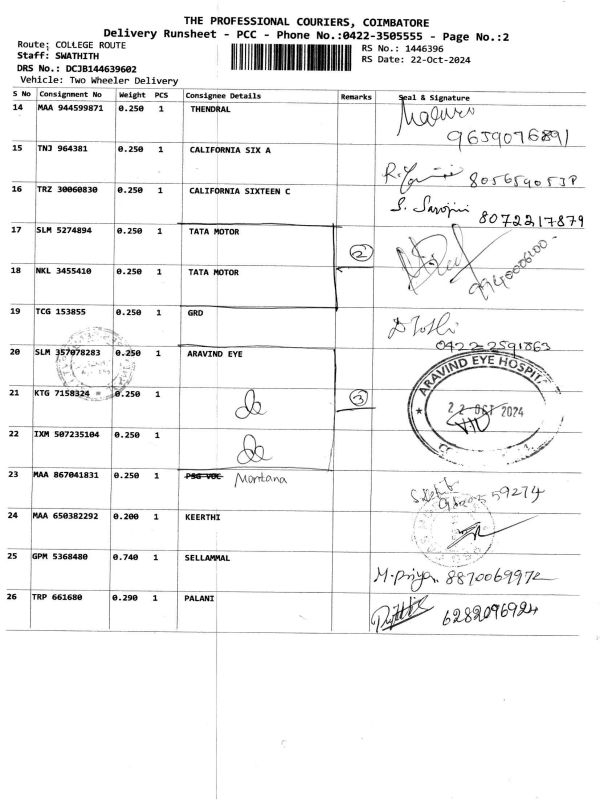 THE PROFESSIONAL COURIERS, COIMBATORE
Delivery Runsheet - PCC - Phone No.:0422-3505555 - Page No.:2
Route: COLLEGE ROUTE
Staff: SWATHITH
DRS No.: DCJB144639602
Vehicle: Two Wheeler Delivery
RS No.: 1446396
RS Date: 22-Oct-2024
S No Consignment No Weight PCS Consignee Details Remarks Seal & Signature
14 MAA 944599871 0.250 1 THENDRAL
9659076891
15 TNJ 964381 0.250 1 CALIFORNIA SIX A
16 TRZ 30060830 0.250 1 CALIFORNIA SIXTEEN C
S. Sarojini 8072217879
17 SLM 5274894 0.250 1 TATA MOTOR
2
18 NKL 3455410 0.250 1 TATA MOTOR
19 TCG 153855 0.250 1 GRD
0422-2591863
20 SLM 357078283 0.250 1 ARAVIND EYE
ARAVIND EYE HOSPITAL
21 KTG 7158324 0.250 1 do 3
22 OCT 2024
22 IXM 507235104 0.250 1 do
23 MAA 867041831 0.250 1 PSG VOC Montana
59274
24 MAA 650382292 0.200 1 KEERTHI
25 GPM 5368480 0.740 1 SELLAMMAL
M. Priya 8870069972
26 TRP 661680 0.290 1 PALANI
6282096924